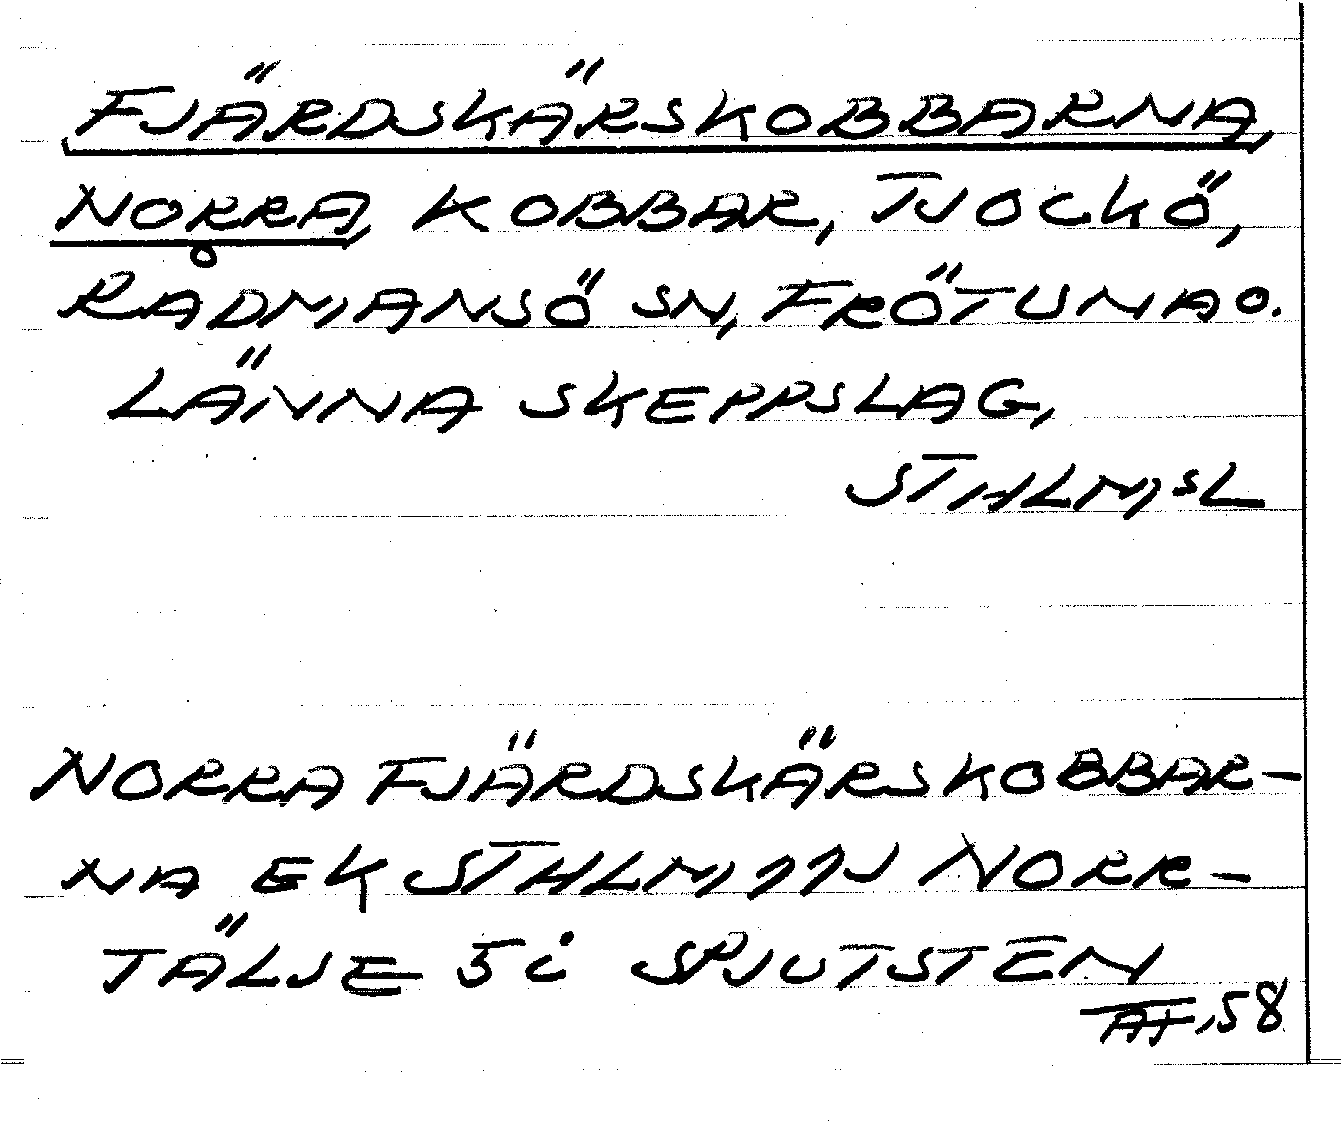 FJÄRDSKÄRSKOBBARNA,
NORRA, KOBBAR, TJOCKÖ,
RÅDMANSÖ SN, FRÖTUNA O.
LÄNNA SKEPPSLAG,
STHLM,SL
NORRA FJÄRDSKÄRSKOBBAR-
NA EK STHLM 11J NORR-
TÄLJE 5 C SPJUTSTEN
AF,58